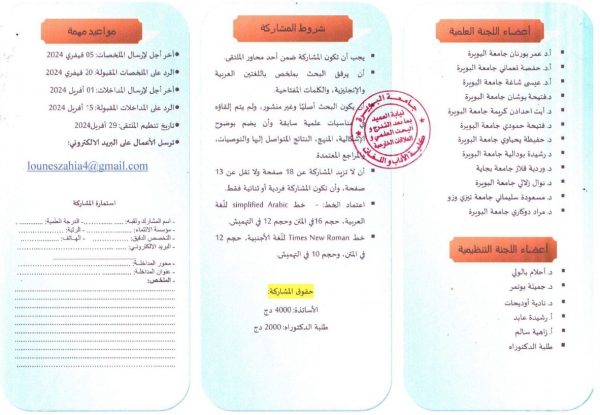 أعضاء اللجنة العلمية
أ.د. عمر بورنان جامعة البويرة
أ.د. حفصة نعماني جامعة البويرة
أ.د. عيسى شاغة جامعة البويرة
د.فتيحة بوشان جامعة البويرة
د. آيت احدادن كريمة جامعة البويرة
د. فتيحة حمودي جامعة البويرة
د. حفيظة يحياوي جامعة البويرة
د. رشيدة بودالية جامعة البويرة
د. وردية قلاز جامعة بجاية
د. نوال زلالي جامعة البويرة
د. مسعودة سليماني جامعة تيزي وزو
د. مراد دوكاري جامعة البويرة
أعضاء اللجنة التنظيمية
د. أحلام بالولي
د. جميلة بوتمر
د. نادية أوديحات
أ. رشيدة عابد
أ. زاهية سالم
طلبة الدكتوراه
شروط المشاركة
يجب أن تكون المشاركة ضمن أحد محاور الملتقى.
أن يرفق البحث بملخص باللغتين العربية
والإنجليزية، والكلمات المفتاحية.
يكون البحث أصليًا وغير منشور، ولم يتم إلقاؤه
مناسبات علمية سابقة وأن يضم بوضوح
الإشكالية، المنهج، النتائج المتواصل إليها والتوصيات،
والمراجع المعتمدة.
أن لا تزيد المشاركة عن 18 صفحة ولا تقل عن 13
صفحة، وأن تكون المشاركة فردية أو ثنائية فقط.
اعتماد الخط: - خط simplified Arabic للّغة
العربية، حجم 16في المتن وحجم 12 في التهميش.
خط Times New Roman للّغة الأجنبية، حجم 12
في المتن، وحجم 10 في التهميش.
حقوق المشاركة:
الأساتذة: 4000 دج
طلبة الدكتوراه: 2000 دج
جامعة البويرة
نيابة العمادة
بما بعد التدرج و
البحث العلمي و
العلاقات الخارجية
كلية الآداب و اللغات
مواعيد مهمة
آخر أجل لإرسال الملخصات: 05 فيفري 2024
الرد على الملخصات المقبولة: 20 فيفري 2024
آخر أجل لإرسال المداخلات: 01 أفريل 2024
الرد على المداخلات المقبولة: 15 أفريل 2024
تاريخ تنظيم الملتقى: 29 أفريل2024
ترسل الأعمال على البريد الالكتروني:
louneszahia4@gmail.com
استمارة المشاركة
- اسم المشارك ولقبه: - الدرجة العلمية:
- مؤسسة الانتماء: - الرتبة:
- التخصص الدقيق: - الهاتف:
- البريد الالكتروني:
- محور المداخلة:
- عنوان المداخلة:
- الملخص: